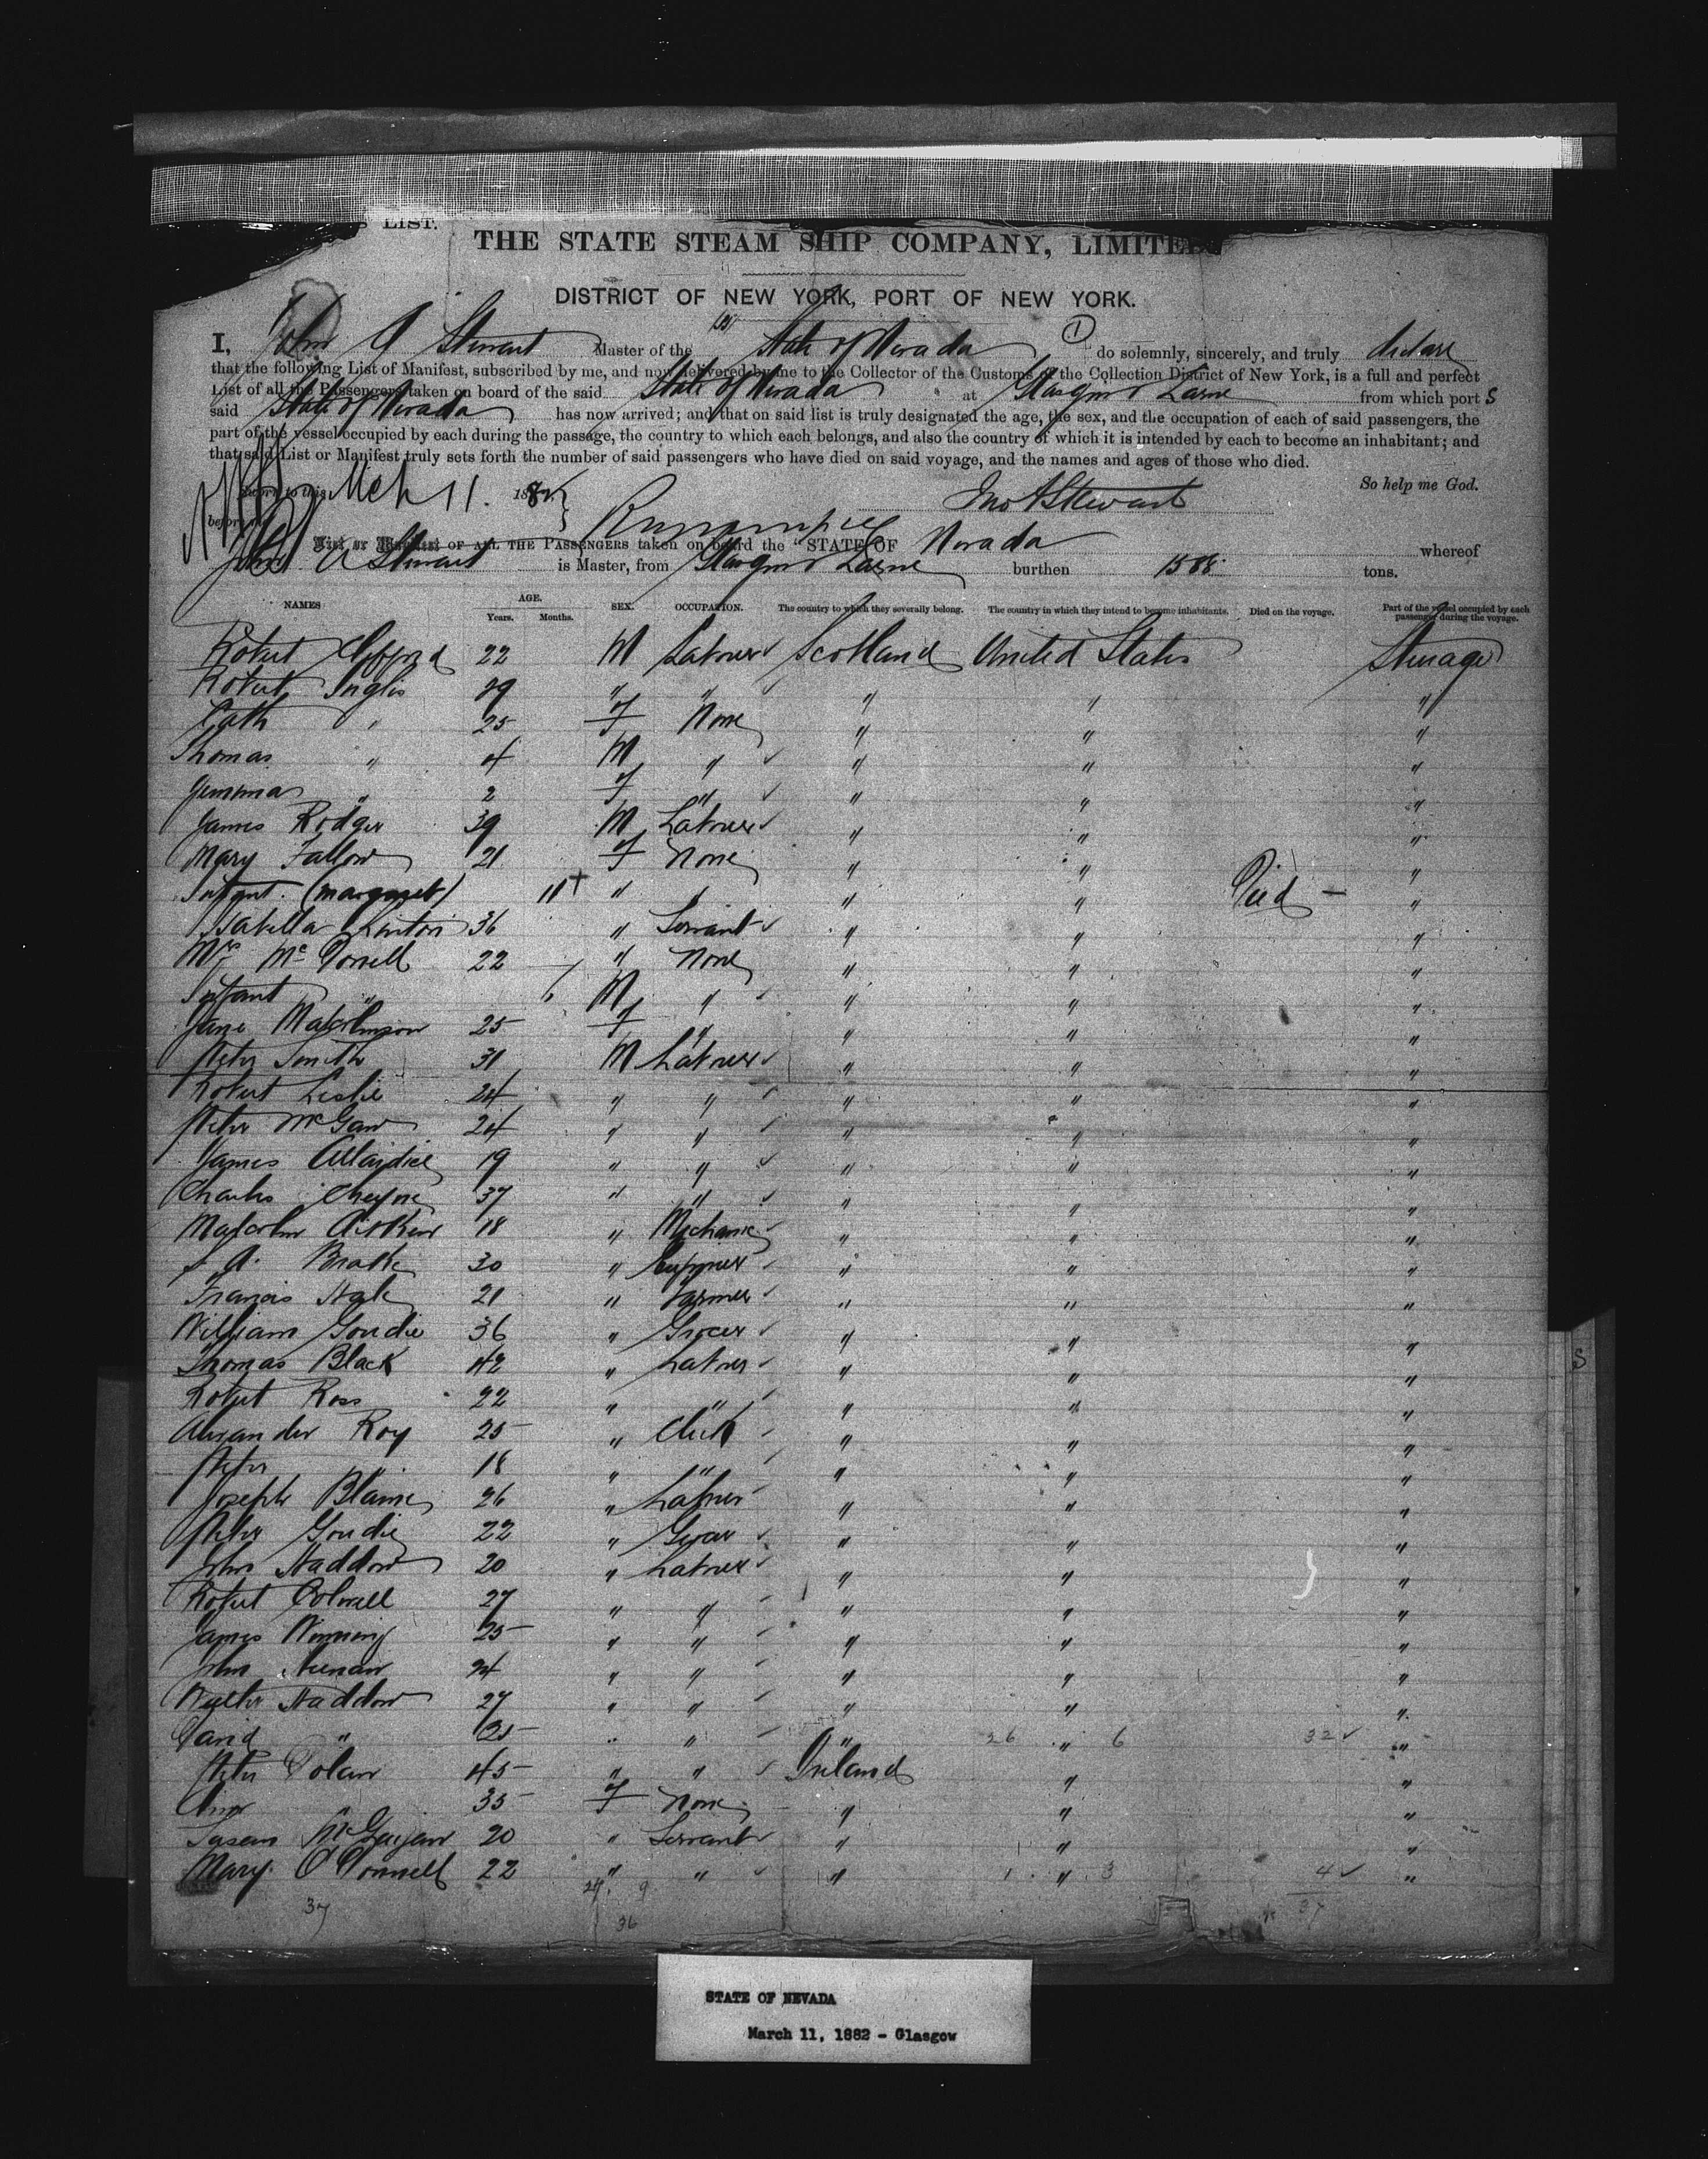 LIST.
THE STATE STEAM SHIP COMPANY, LIMITED
DISTRICT OF NEW YORK, PORT OF NEW YORK.
I, John A Stewart Master of the SS State of Nevada 1 do solemnly, sincerely, and truly declare
that the following List of Manifest, subscribed by me, and now delivered by me to the Collector of the Customs of the Collection District of New York, is a full and perfect
List of all the Passengers taken on board of the said State of Nevada at Glasgow & Larne from which port s
said State of Nevada has now arrived; and that on said list is truly designated the age, the sex, and the occupation of each of said passengers, the
part of the vessel occupied by each during the passage, the country to which each belongs, and also the country of which it is intended by each to become an inhabitant; and
that said List or Manifest truly sets forth the number of said passengers who have died on said voyage, and the names and ages of those who died.
So help me God.
Sworn to this Mch 11. 1882 Jno A Stewart
before me
List or Manifest OF ALL THE PASSENGERS taken on board the "STATE OF Nevada whereof
John A Stewart is Master, from Glasgow & Larne burthen 1588 tons.
NAMES AGE. Years. Months. SEX. OCCUPATION. The country to which they severally belong. The country in which they intend to become inhabitants. Died on the voyage. Part of the vessel occupied by each passenger during the voyage.
Robert Gifford 22 M Labourer Scotland United States Steerage
Robert Inglis 29 " " " " "
Cath " 25 F None " " "
Thomas " 4 M " " " "
Jemima " 2 F " " " "
James Rodger 39 M Labourer " " "
Mary Fallow 21 F None " " "
Infant (Margaret) 11 " " " Died "
Isabella Linton 36 " Servant " " "
Mrs McDonell 22 " None " " "
Infant " 6 M " " " "
Jane Malcolmson 25 F " " " "
Peter Smith 31 M Labourer " " "
Robert Leslie 24 " " " " "
Peter McGaw 24 " " " " "
James Allardice 19 " " " " "
Charles Cheyne 37 " " " " "
Malcolm Aitken 18 " Mechanic " " "
30 " " " "
Francis 21 " Farmer " " "
William Goudie 36 " Grocer " " "
Thomas Black 42 " Labourer " " "
Robert Ross 22 " " " " "
Alexander Roy 25 " Clerk " " "
Peter " 18 " " " " "
Joseph Blaine 26 " Labourer " " "
Peter Goudie 22 " " " "
John Haddow 20 " Labourer " " "
Robert Colwell 27 " " " " "
James Winning 25 " " " " "
John 24 " " " " "
Walter Haddow 27 " " " " "
David " 25 " " " 26 " 6 32 "
Peter Dolan 45 " " Ireland " "
Ann " 35 F None " " "
Susan McGuigan 20 " Servant " " "
Mary O'Donnell 22 " " " 1 " 3 4 "
37 27 9 37
36
STATE OF NEVADA
March 11, 1882 - Glasgow